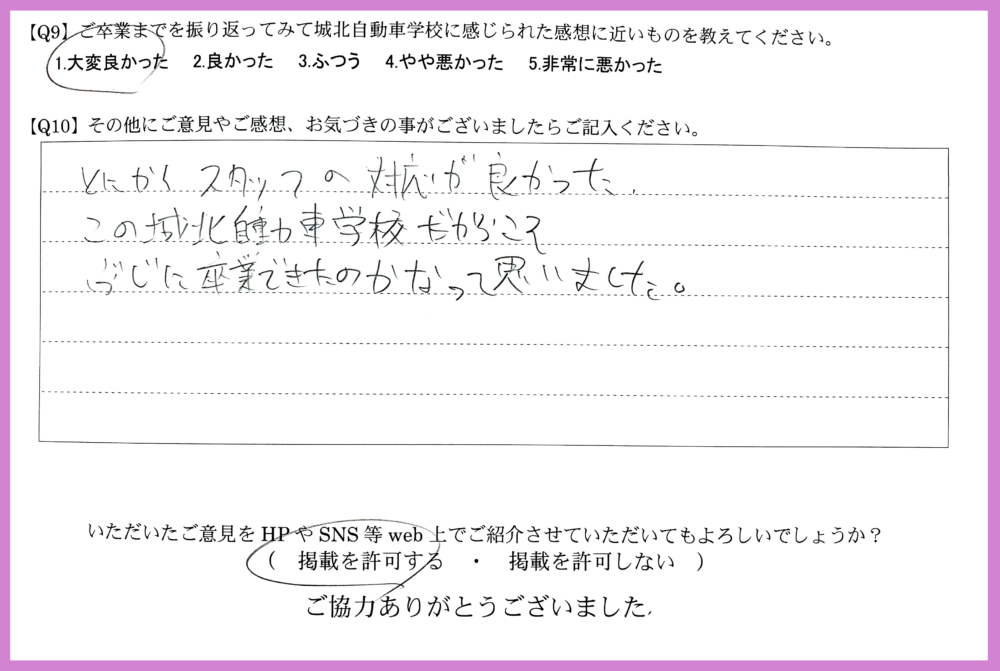 【Q9】ご卒業までを振り返ってみて城北自動車学校に感じられた感想に近いものを教えてください。
1.大変良かった　2.良かった　3.ふつう　4.やや悪かった　5.非常に悪かった
【Q10】その他にご意見やご感想、お気づきの事がございましたらご記入ください。
とにかく スタッフの 対応が 良かった.
この城北自動車学校だからこそ
ぶじに卒業できたのかなって思いました。
いただいたご意見をHPやSNS等web上でご紹介させていただいてもよろしいでしょうか？
（　掲載を許可する　・　掲載を許可しない　）
ご協力ありがとうございました.